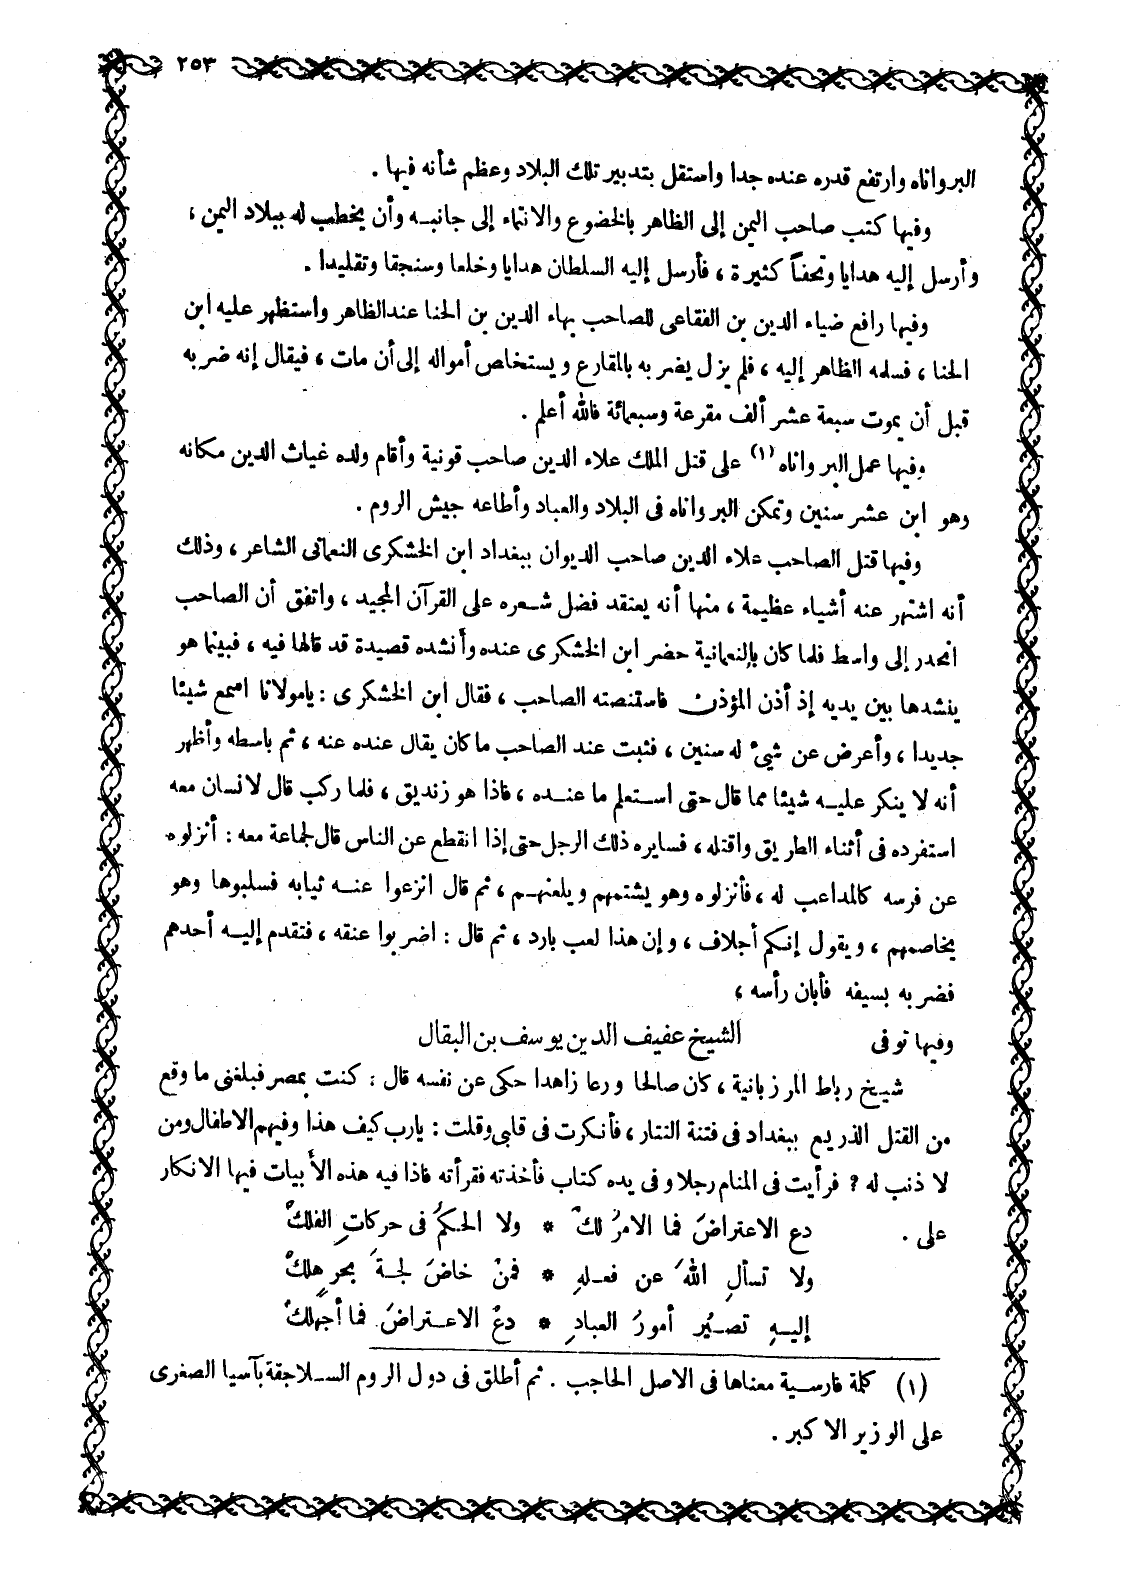 ٢٥٣
البرواناه وارتفع قدره عنده جدا واستقل بتدبير تلك البلاد وعظم شأنه فيها .
وفيها كتب صاحب اليمن إلى الظاهر بالخضوع والانتماء إلى جانبه وأن يخطب له ببلاد اليمن ،
وأرسل إليه هدايا وتحفاً كثيرة ، فأرسل إليه السلطان هدايا وخلعا وسنجقا وتقليدا .
وفيها رافع ضياء الدين بن الفقاعى للصاحب بهاء الدين بن الحنا عند الظاهر واستظهر عليه ابن
الحنا ، فسلمه الظاهر إليه ، فلم يزل يضربه بالمقارع ويستخلص أمواله إلى أن مات ، فيقال إنه ضربه
قبل أن يموت سبعة عشر ألف مقرعة وسبعمائة فالله أعلم .
وفيها عمل البرواناه (١) على قتل الملك علاء الدين صاحب قونية وأقام ولده غياث الدين مكانه
وهو ابن عشر سنين وتمكن البرواناه فى البلاد والعباد وأطاعه جيش الروم .
وفيها قتل الصاحب علاء الدين صاحب الديوان ببغداد ابن الخشكرى النعمانى الشاعر ، وذلك
أنه اشتهر عنه أشياء عظيمة ، منها أنه يعتقد فضل شعره على القرآن المجيد ، واتفق أن الصاحب
انحدر إلى واسط فلما كان بالنعمانية حضر ابن الخشكرى عنده وأنشده قصيدة قد قالها فيه ، فبينما هو
ينشدها بين يديه إذ أذن المؤذن فاستنصته الصاحب ، فقال ابن الخشكرى : يامولانا اسمع شيئا
جديدا ، وأعرض عن شيء له سنين ، فثبت عند الصاحب ما كان يقال عنده عنه ، ثم باسطه وأظهر
أنه لا ينكر عليه شيئا مما قال حتى استعلم ما عنده ، فاذا هو زنديق ، فلما ركب قال لانسان معه
استفرده فى أثناء الطريق واقتله ، فسايره ذلك الرجل حتى إذا انقطع عن الناس قال لجماعة معه : أنزلوه
عن فرسه كالمداعب له ، فأنزلوه وهو يشتمهم ويلعنهم ، ثم قال انزعوا عنه ثيابه فسلبوها وهو
يخاصمهم ، ويقول إنكم أجلاف ، وإن هذا لعب بارد ، ثم قال : اضربوا عنقه ، فتقدم إليه أحدهم
فضربه بسيفه فأبان رأسه ،
وفيها توفى الشيخ عفيف الدين يوسف بن البقال
شيخ رباط المرزبانية ، كان صالحا ورعا زاهدا حكى عن نفسه قال : كنت بمصر فبلغنى ما وقع
من القتل الذريع ببغداد فى فتنة التتار ، فأنكرت فى قلبى وقلت : يارب كيف هذا وفيهم الاطفال ومن
لا ذنب له ؟ فرأيت فى المنام رجلا وفى يده كتاب فأخذته فقرأته فاذا فيه هذه الأبيات فيها الانكار
على . دع الاعتراضَ فما الامرُ لكْ * ولا الحكمُ فى حركاتِ الفلكْ
ولا تسألِ اللهَ عن فعلهِ * فمنْ خاضَ لجةَ بحرٍ هلكْ
إليهِ تصيُر أمورُ العبادِ * دعْ الاعتراضَ فما أجهلكْ
(١) كلمة فارسية معناها فى الاصل الحاجب . ثم أطلق فى دول الروم السلاجقة بآسيا الصغرى
على الوزير الاكبر .